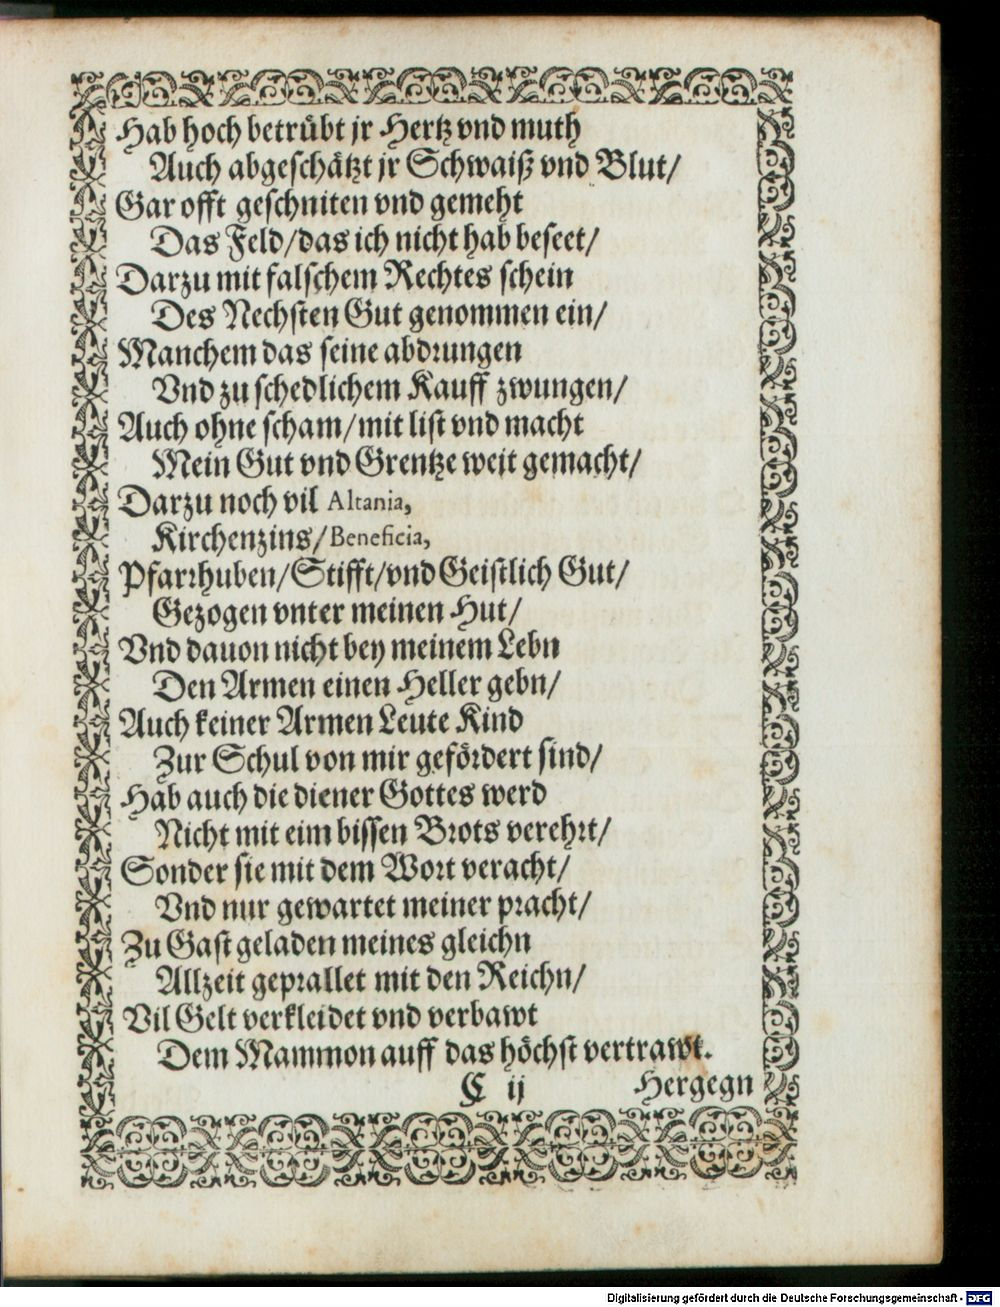 Hab hoch betrübt jr Hertz vnd muth
Auch abgeschätzt jr Schwaiß vnd Blut/
Gar offt geschniten vnd gemeht
Das Feld/das ich nicht hab beseet/
Darzu mit falschem Rechtes schein
Des Nechsten Gut genommen ein/
Manchem das seine abdrungen
Vnd zu schedlichem Kauff zwungen/
Auch ohne scham/mit list vnd macht
Mein Gut vnd Grentze weit gemacht/
Darzu noch vil Altaria,
Kirchenzins/Beneficia,
Pfarrhuben/Stifft/vnd Geistlich Gut/
Gezogen vnter meinen Hut/
Vnd dauon nicht bey meinem Lebn
Den Armen einen Heller gebn/
Auch keiner Armen Leute Kind
Zur Schul von mir gefördert sind/
Hab auch die diener Gottes werd
Nicht mit eim bissen Brots verehrt/
Sonder sie mit dem Wort veracht/
Vnd nur gewartet meiner pracht/
Zu Gast geladen meines gleichn
Allzeit geprallet mit den Reichn/
Vil Gelt verkleidet vnd verbawt
Dem Mammon auff das höchst vertrawt.
C ij Hergegn
Digitalisierung gefördert durch die Deutsche Forschungsgemeinschaft - DFG